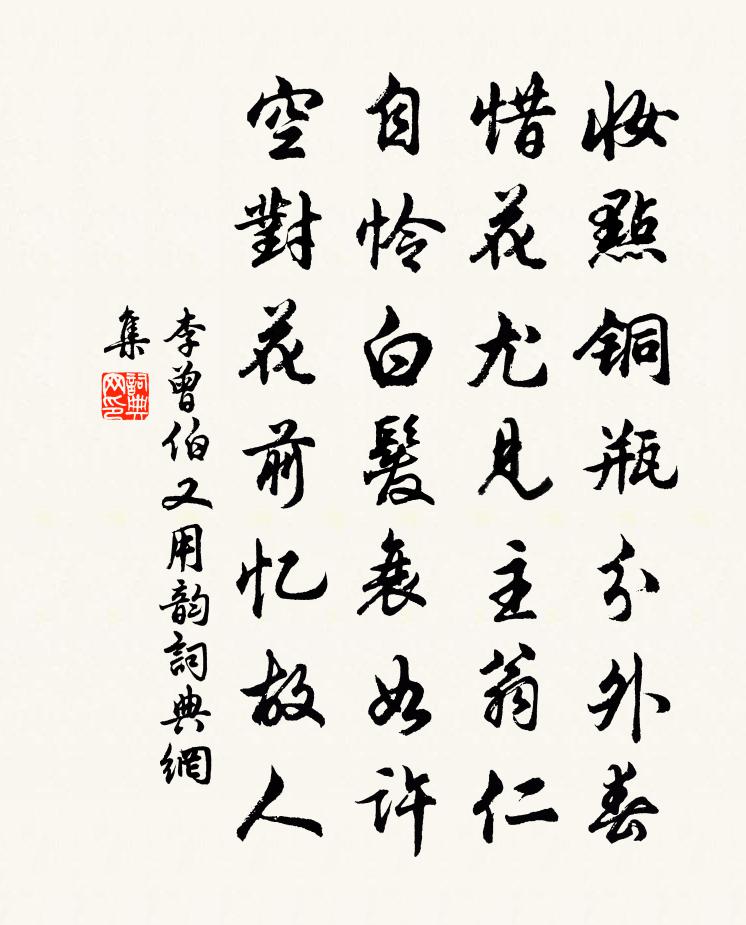 妆點铜瓶分外春
惜花尤見主翁仁
自怜白髮衰如許
空對花前忆故人
李曾伯又用韵詞典網
集
詞典网印